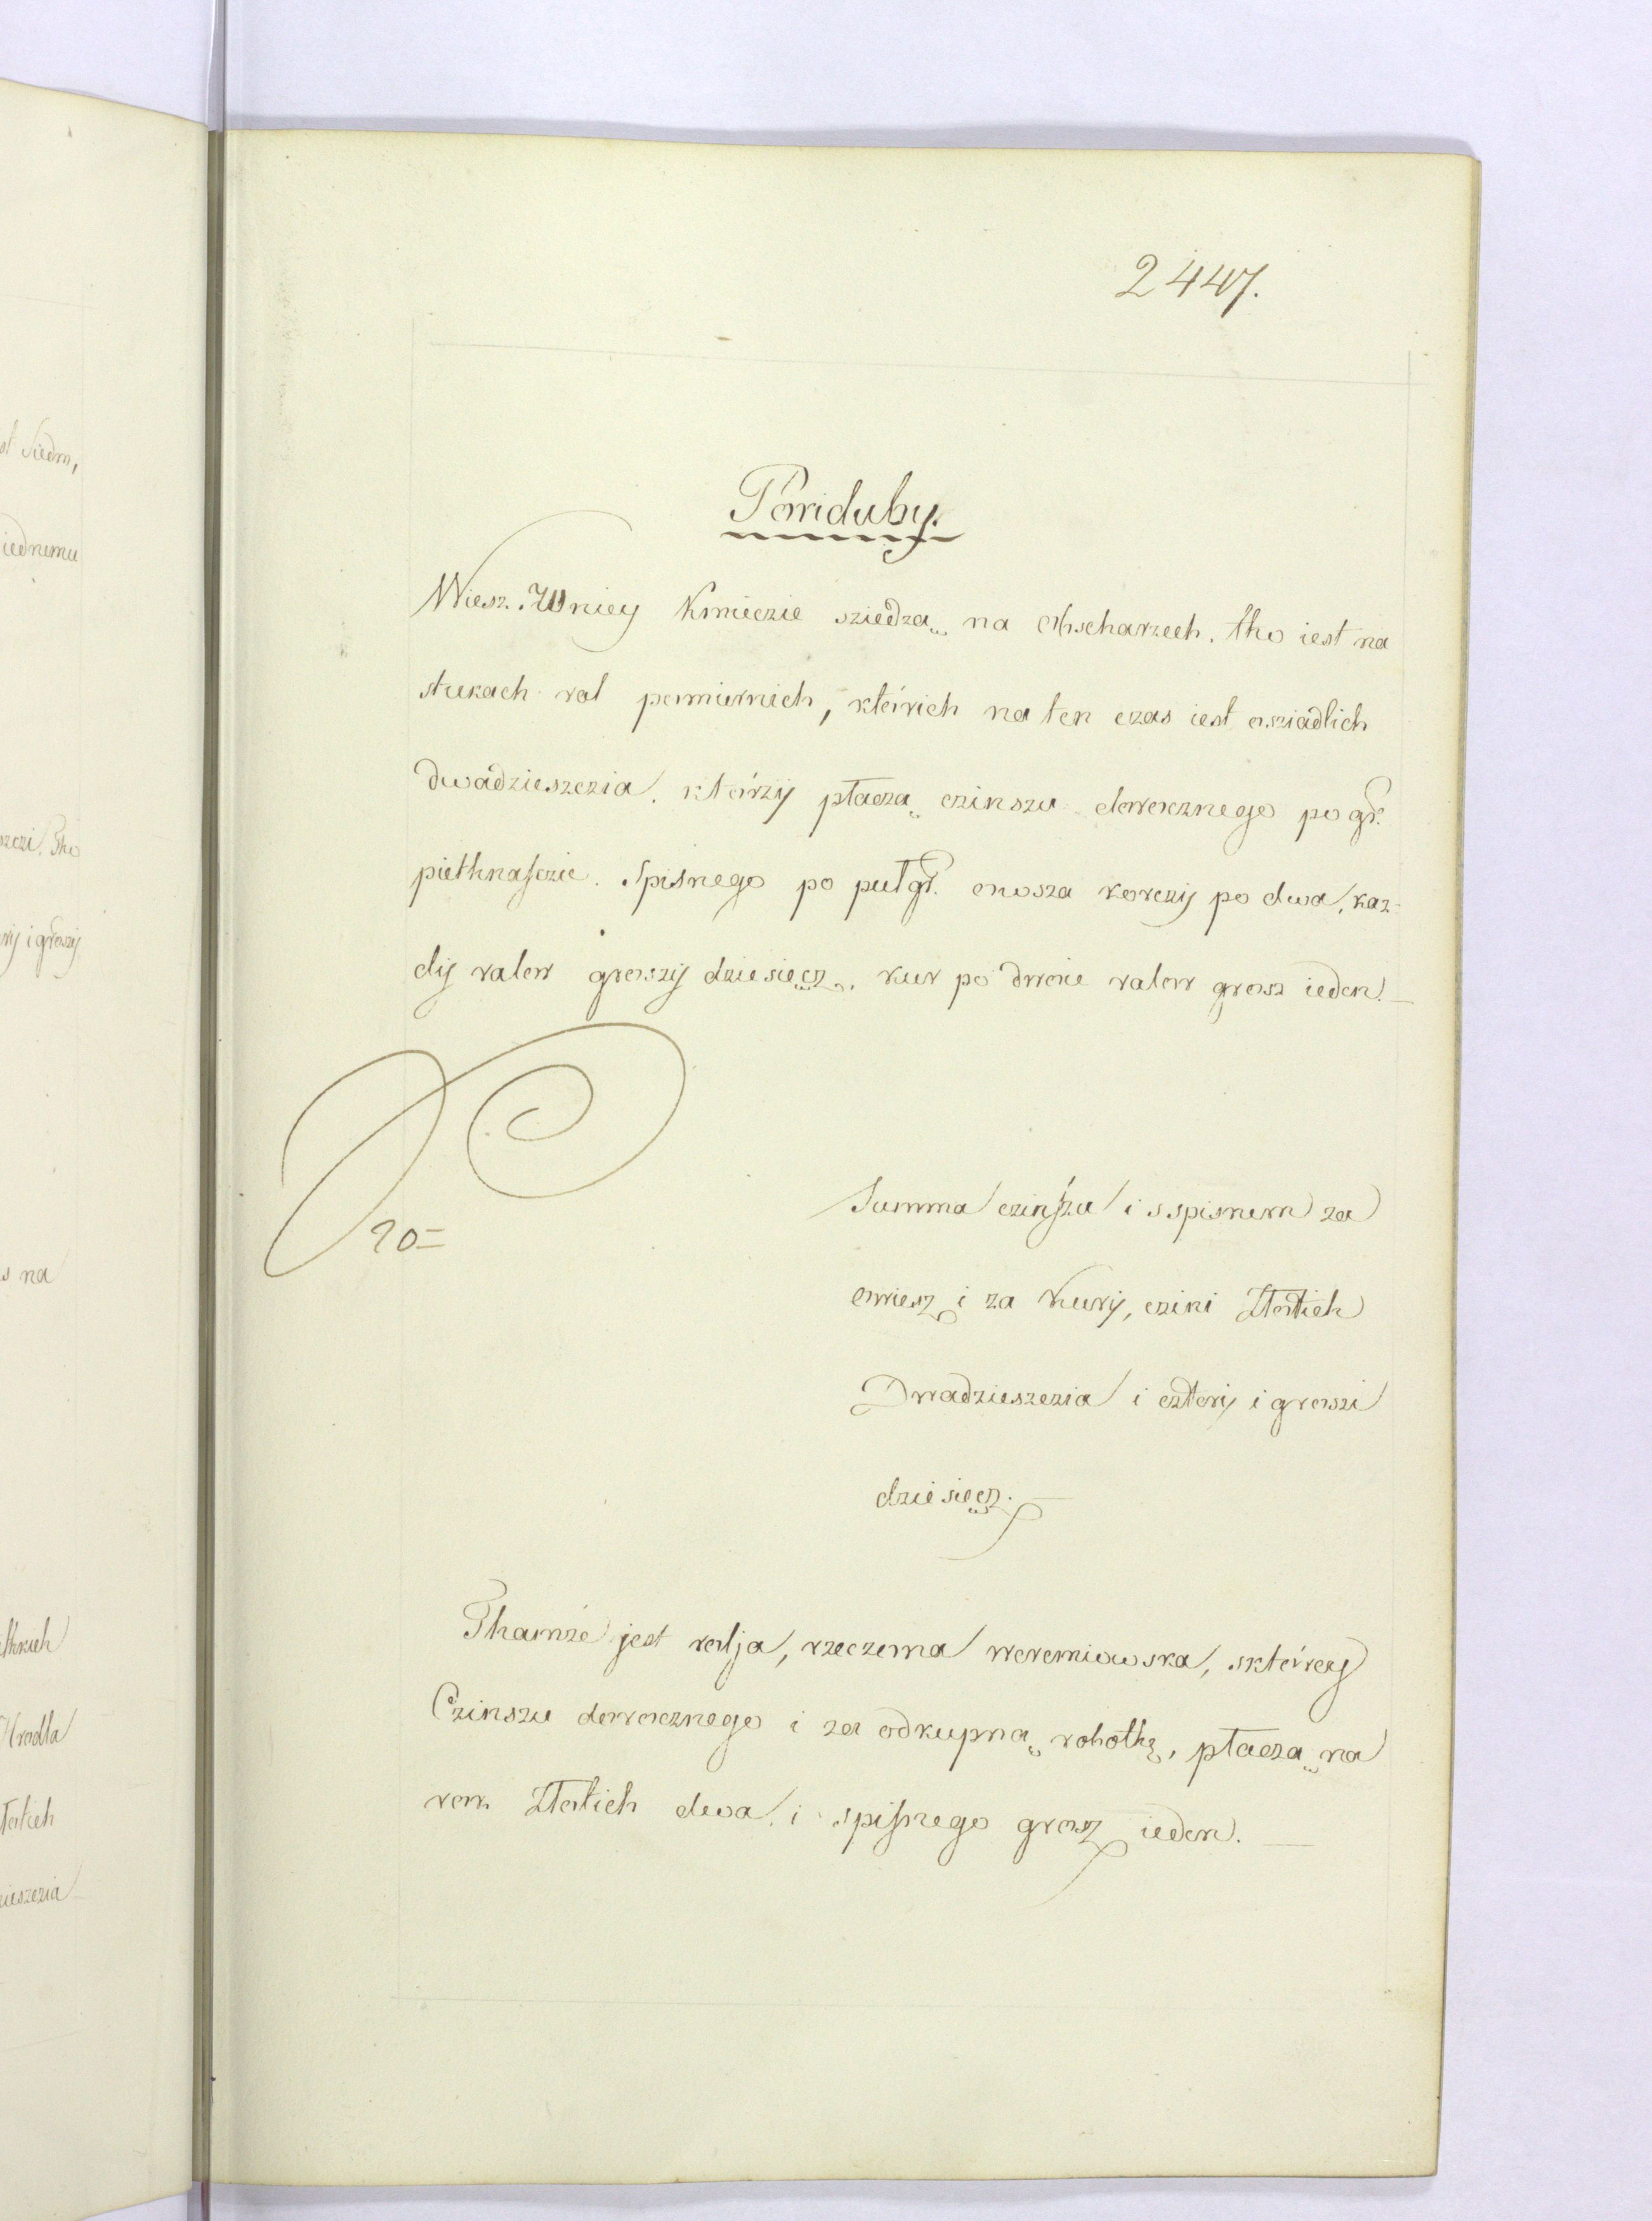 2447.
Poviduby.
Wiesz. Wniey Kmieczie sziedzą na obscharzech. tho iest na
stukach rol pomiernich, którich na ten czas iest osziadlich
dwadzieszczia. którzÿ płaczą czinszu dorocznego po gr.
piethnaſczie. Spisnego po puł gr. owsza korczÿ po dwa, kaz-
dÿ valor groszÿ dziesięcz. kur po dwoie valor grosz ieden.
st siedm,
iednemu
szczi. Tho
rÿ i groszÿ
s na
łolich
ieszczia
20=
Summa czinſzu i s spisnem za
owiesz i za kurÿ, czini Złotich
Dwadzieszczia i cztorÿ i groszi
dziesięcz.
Thamże jest rolja, rzeczona weremiowska, s którey
Czinszu dorocznego i za odkupną robothę, płaczą na
rok Złotich dwa. i spiſnego grosz ieden.